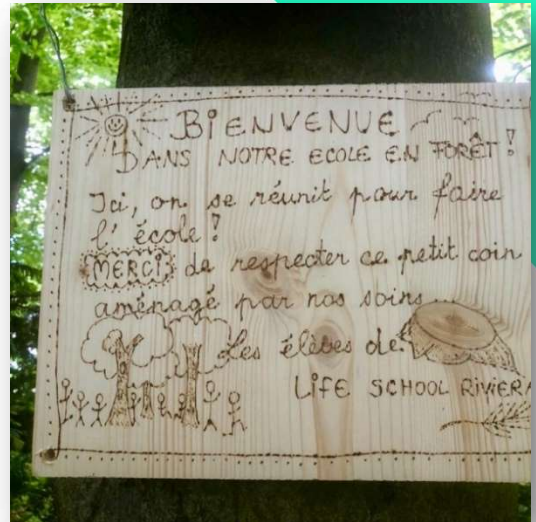 BIENVENUE
DANS NOTRE ECOLE EN FORÊT!
Ici, on se réunit pour faire
l'école!
MERCI de respecter ce petit coin
aménagé par nos soins...
Les élèves de
LIFE SCHOOL RIVIERA